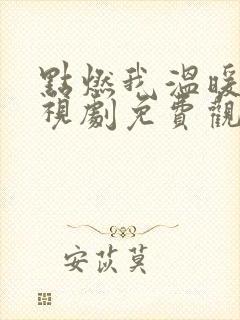 點燃我溫暖
視劇免費觀
安苡莫